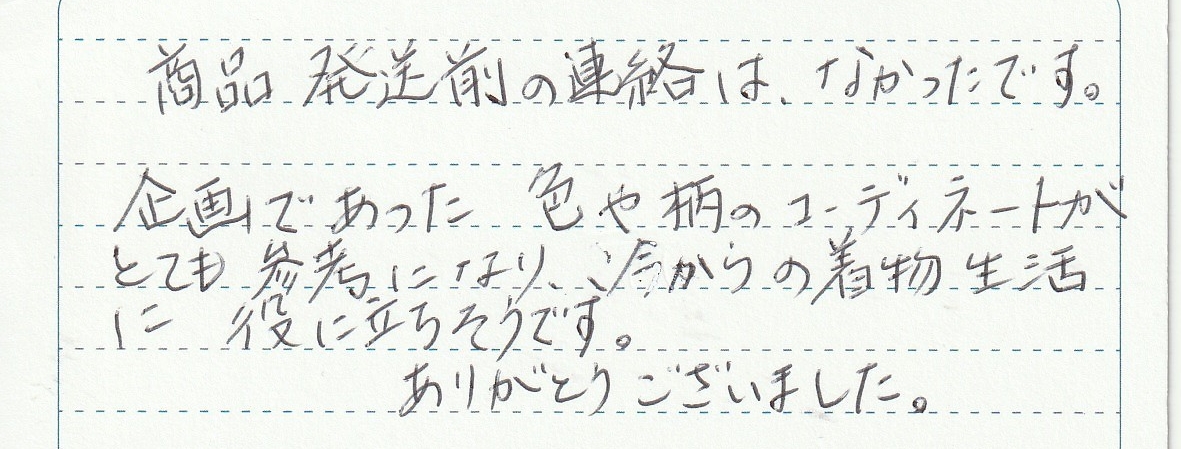 商品 発送前の連絡は、なかったです。
企画であった 色や柄のコーディネートが
とても 参考になり、今からの着物生活
に 役に立ちそうです。
ありがとうございました。